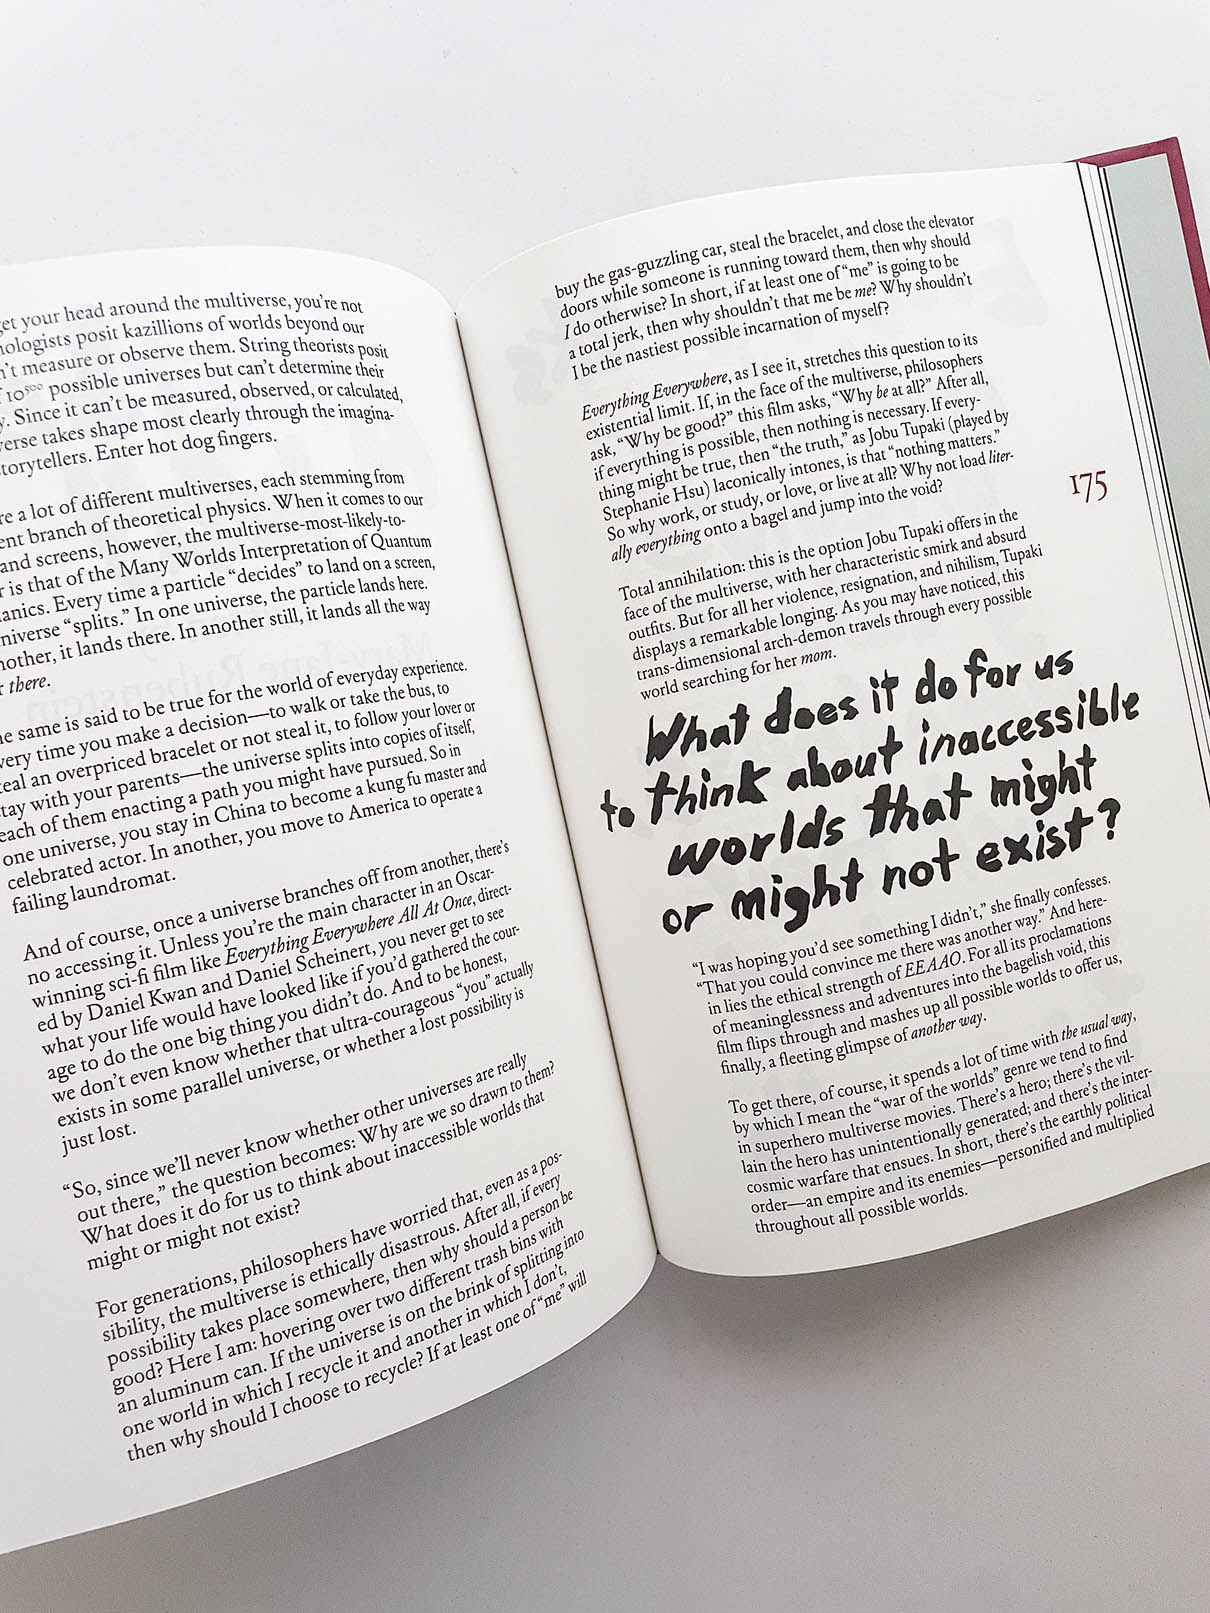 get your head around the multiverse, you're not
nologists posit kazillions of worlds beyond our
n't measure or observe them. String theorists posit
f 10⁵⁰⁰ possible universes but can't determine their
y. Since it can't be measured, observed, or calculated,
verse takes shape most clearly through the imagina-
storytellers. Enter hot dog fingers.
re a lot of different multiverses, each stemming from
ent branch of theoretical physics. When it comes to our
and screens, however, the multiverse-most-likely-to-
r is that of the Many Worlds Interpretation of Quantum
anics. Every time a particle “decides” to land on a screen,
niverse “splits.” In one universe, the particle lands here.
nother, it lands there. In another still, it lands all the way
r there.
he same is said to be true for the world of everyday experience.
very time you make a decision—to walk or take the bus, to
teal an overpriced bracelet or not steal it, to follow your lover or
stay with your parents—the universe splits into copies of itself,
each of them enacting a path you might have pursued. So in
one universe, you stay in China to become a kung fu master and
celebrated actor. In another, you move to America to operate a
failing laundromat.
And of course, once a universe branches off from another, there's
no accessing it. Unless you're the main character in an Oscar-
winning sci-fi film like Everything Everywhere All At Once, direct-
ed by Daniel Kwan and Daniel Scheinert, you never get to see
what your life would have looked like if you'd gathered the cour-
age to do the one big thing you didn't do. And to be honest,
we don't even know whether that ultra-courageous “you” actually
exists in some parallel universe, or whether a lost possibility is
just lost.
“So, since we'll never know whether other universes are really
out there,” the question becomes: Why are we so drawn to them?
What does it do for us to think about inaccessible worlds that
might or might not exist?
For generations, philosophers have worried that, even as a pos-
sibility, the multiverse is ethically disastrous. After all, if every
possibility takes place somewhere, then why should a person be
good? Here I am: hovering over two different trash bins with
an aluminum can. If the universe is on the brink of splitting into
one world in which I recycle it and another in which I don't,
then why should I choose to recycle? If at least one of “me” will
buy the gas-guzzling car, steal the bracelet, and close the elevator
doors while someone is running toward them, then why should
I do otherwise? In short, if at least one of “me” is going to be
a total jerk, then why shouldn't that me be me? Why shouldn't
I be the nastiest possible incarnation of myself?
Everything Everywhere, as I see it, stretches this question to its
existential limit. If, in the face of the multiverse, philosophers
ask, “Why be good?” this film asks, “Why be at all?” After all,
if everything is possible, then nothing is necessary. If every-
thing might be true, then “the truth,” as Jobu Tupaki (played by
Stephanie Hsu) laconically intones, is that “nothing matters.”
So why work, or study, or love, or live at all? Why not load liter-
ally everything onto a bagel and jump into the void?
175
Total annihilation: this is the option Jobu Tupaki offers in the
face of the multiverse, with her characteristic smirk and absurd
outfits. But for all her violence, resignation, and nihilism, Tupaki
displays a remarkable longing. As you may have noticed, this
trans-dimensional arch-demon travels through every possible
world searching for her mom.
What does it do for us
to think about inaccessible
worlds that might
or might not exist?
“I was hoping you'd see something I didn't,” she finally confesses.
“That you could convince me there was another way.” And here-
in lies the ethical strength of EEAAO. For all its proclamations
of meaninglessness and adventures into the bagelish void, this
film flips through and mashes up all possible worlds to offer us,
finally, a fleeting glimpse of another way.
To get there, of course, it spends a lot of time with the usual way,
by which I mean the “war of the worlds” genre we tend to find
in superhero multiverse movies. There's a hero; there's the vil-
lain the hero has unintentionally generated; and there's the inter-
cosmic warfare that ensues. In short, there's the earthly political
order—an empire and its enemies—personified and multiplied
throughout all possible worlds.